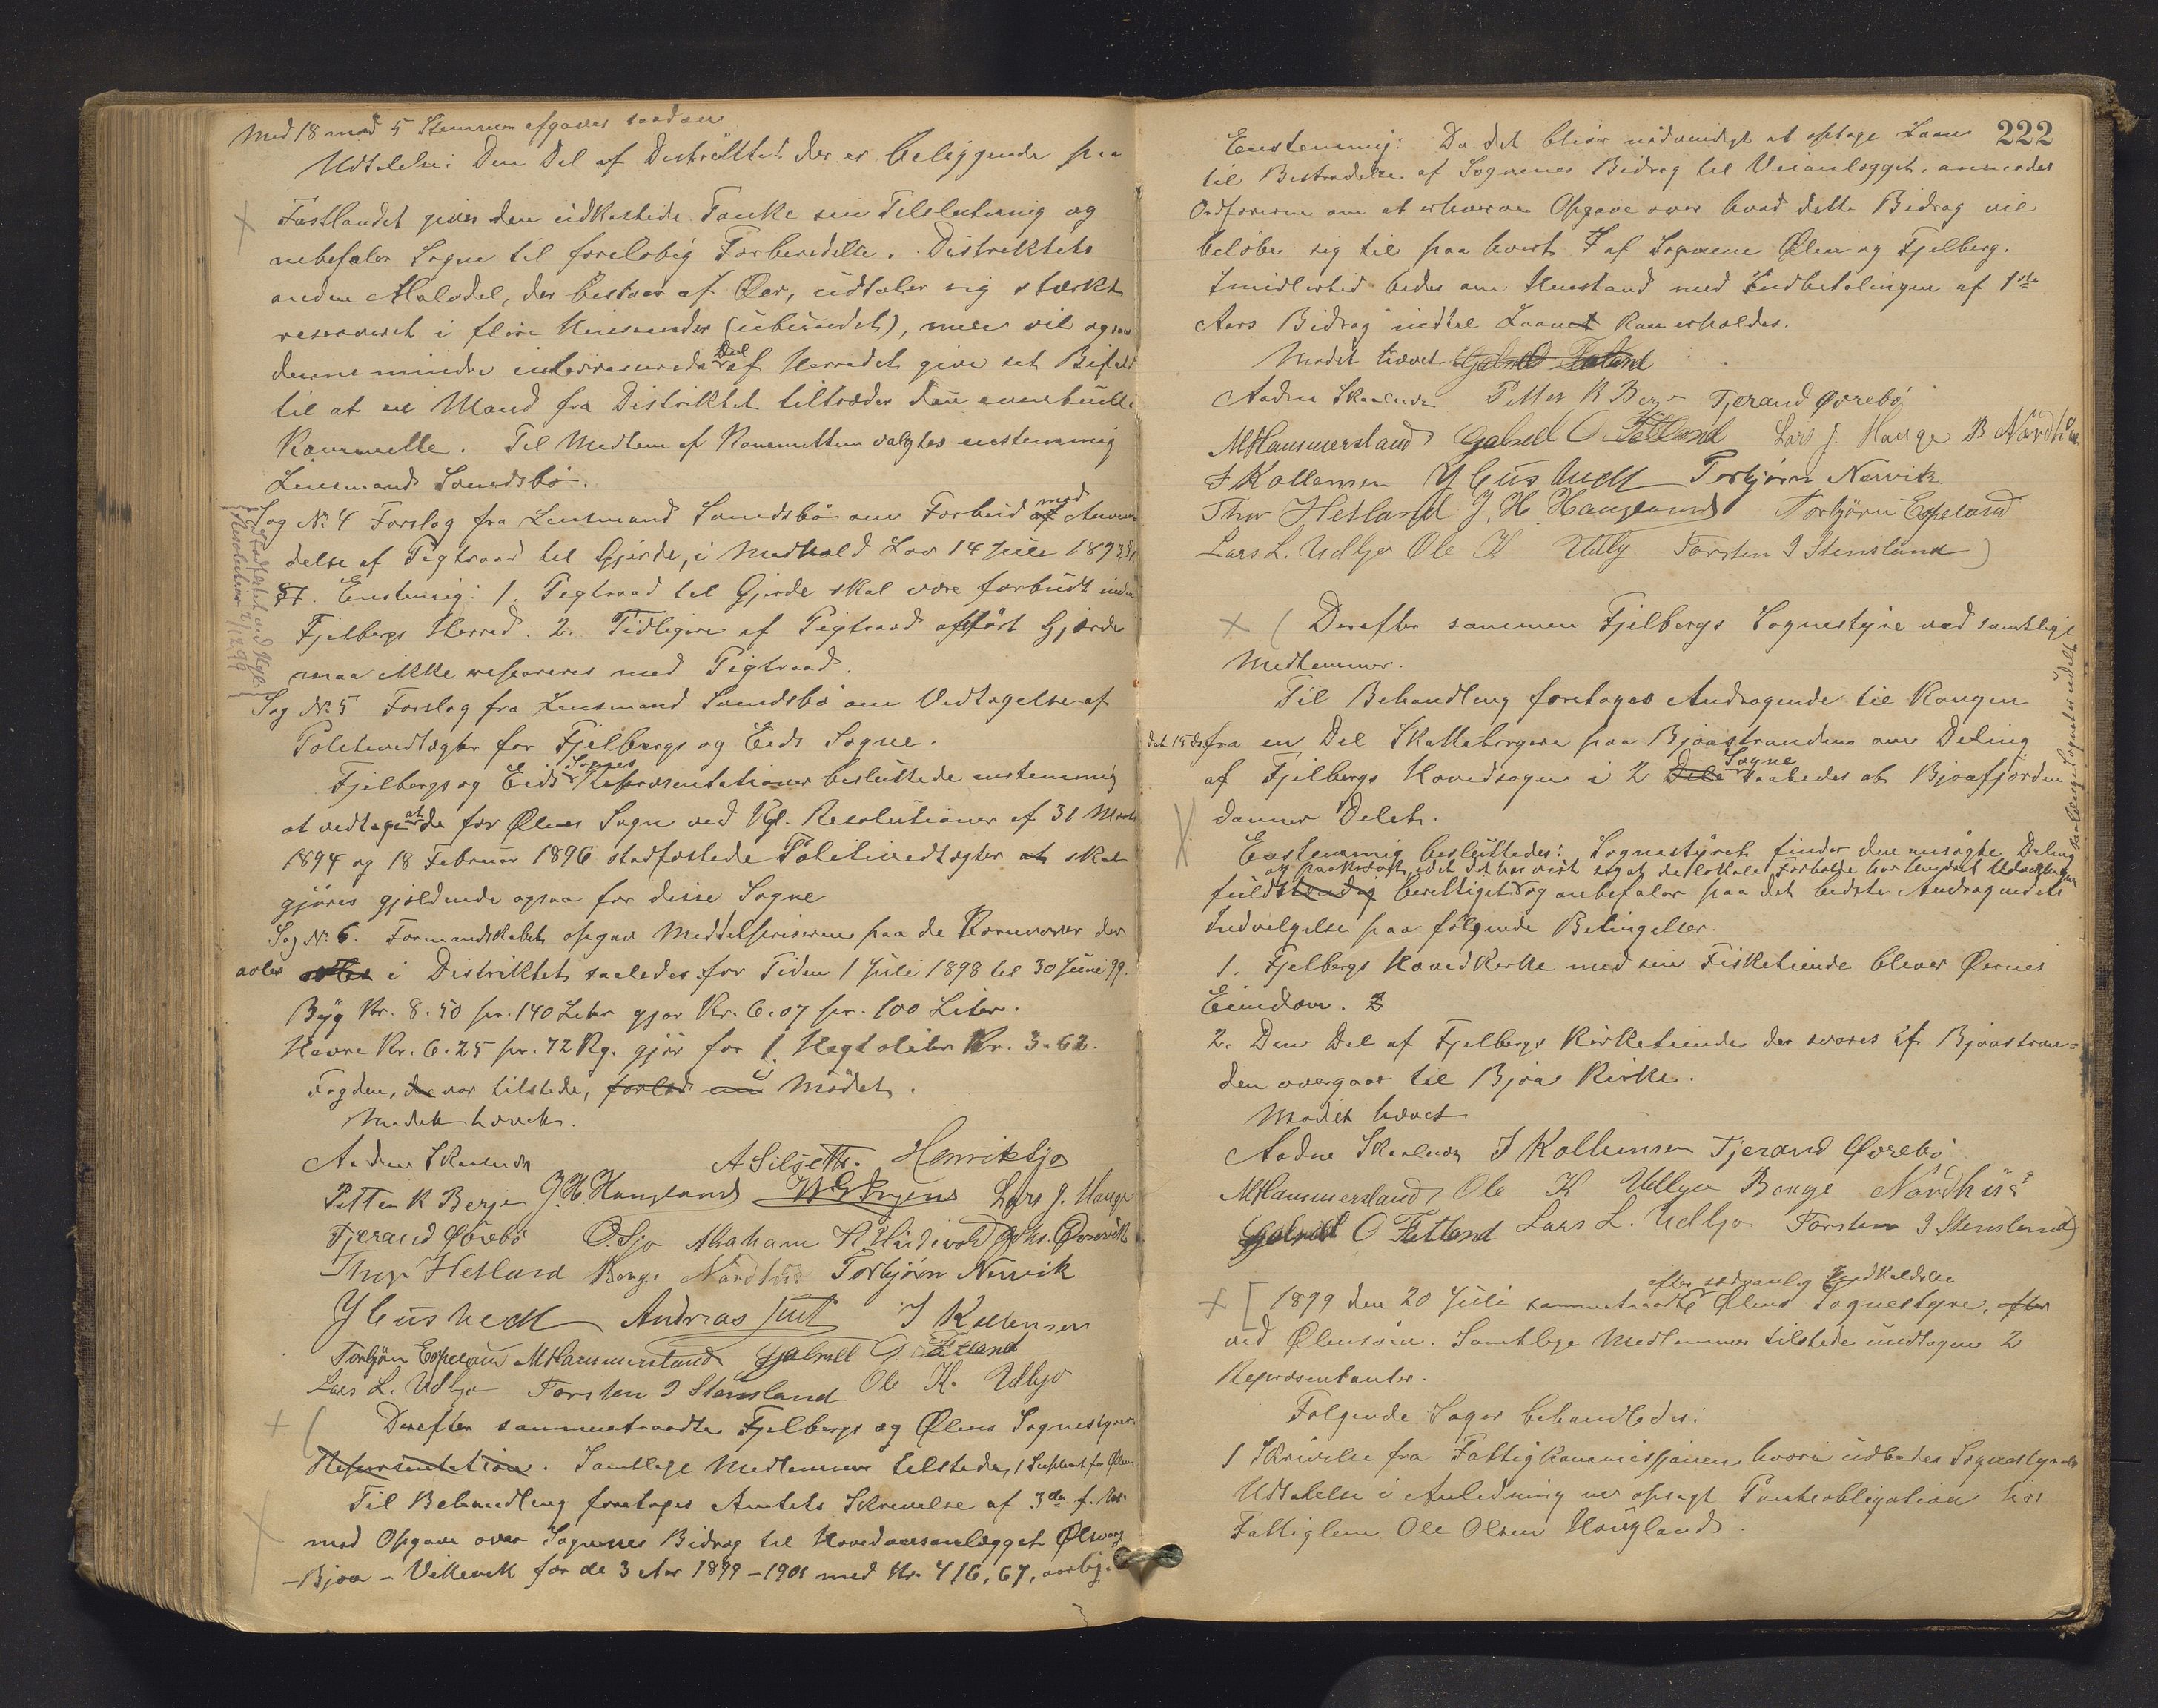 Med 18 mod 5 Stemmer afgaves saadan
Udtalelse: Den Del af Distriktet der er beliggende paa
Fastlandet giver den udkastede Tanke sin Tilslutning og
anbefaler Sogne til foreløbig Forberedelse. Distriktets
anden Halvdel, der bestaar af Øer, udtaler sig stærkt
reserveret i flere Henseender (ubundet), men vil ogsaa
denne mindre interesserede Del af Herredet give sit Bifald
til at en Mand fra Distriktet tiltræder den eventuelle
Kommitte. Til Medlem af Kommitteen valgtes enstemmig
Lensmand Svendsbø.
Sag No. 4 Forslag fra Lensmand Svendsbø om Forbud mod Anven-
delse af Pigtraad til Gjerde, i Medhold Lov 14 Juli 1893
Enstemmig: 1. Pigtraad til Gjerde skal være forbudt inden
Fjelbergs Herred. 2. Tidligere af Pigtraad opført Gjerde
maa ikke repareres med Pigtraad.
Stadfæstet ved Kgl.
Resolution 2/12 99
Sag No. 5 Forslag fra Lensmand Svendsbø om Vedtagelse af
Politivedtægter for Fjelbergs og Eids Sogne.
Fjelbergs og Eids Sognes Repræsentationer besluttede enstemmig
at vedtage at de for Ølens Sogn ved Kgl. Resolutioner af 31 Marts
1894 og 18 Februar 1896 stadfæstede Politivedtægter at skal
gjøres gjældende ogsaa for disse Sogne
Sag No. 6. Formandskabet opgav Middelpriserne paa de Kornvarer der
avles i Distriktet saaledes for Tiden 1 Juli 1898 til 30 Juni 99.
Byg Kr. 8.50 pr. 140 Liter gjør Kr. 6.07 pr. 100 Liter.
Havre Kr. 6.25 pr. 72 Kg. gjør for 1 Hegtoliter Kr. 3.62.
Fogden, der var tilstede, forlod nu Mødet.
Mødet hævet.
Aadne Skaalnes A Silseth. Henrik Sjo
Petter K Berge J. H. Haugland Lars J. Hauge
Tjerand Øvrebø O. Sjo Abraham H. Hindevold Johs. Øvrevik
Thor Hetland Børge Nordhus Torbjørn Nervik
Andreas Juul J Kallemsen
Torbjørn Espeland M Hammersland Gabriel O Fatland
Lars L. Udbjo Torsten J Stensland Ole K. Udbjo
Derefter sammentraadte Fjelbergs og Ølens Sognestyrer
Repræsentation. Samtlige Medlemmer tilstede, 1 Supleant for Ølen.
Til Behandling foretoges Amtets Skrivelse af 3die f. M.
med Opgave over Sognenes Bidrag til Hovedveisanlægget Ølsvaag
- Bjoa - Vikevik for de 3 Aar 1899 - 1901 med Kr. 416,67, aarlig.
222
Enstemmig: Da det bliver nødvendigt at optage Laan
til Bestridelse af Sognenes Bidrag til Veianlægget, anmodes
Ordførerne om at erhverve Opgave over hvad dette Bidrag vil
beløbe sig til paa hvert af Sognene Ølen og Fjelberg.
Imidlertid bedes om Henstand med Indbetalingen af 1ste
Aars Bidrag indtil Laanet kan erholdes.
Mødet hævet. Gabriel Fatland
Aadne Skaalnes Petter K Berge Tjerand Øvrebø
M Hammersland Gabriel O Fatland Lars J. Hauge B Nordhus
J Kallemsen Torbjørn Nervik
Thor Hetland J. H. Haugland Torbjørn Espeland
Lars L. Udbjo Ole K Udbjo Torsten J Stensland
Derefter sammen Fjelbergs Sognestyre ved samtlige
Medlemmer.
Til Behandling foretoges Andragende til Kongen
dat. 15 ds. fra en Del Skatteborgere paa Bjoastranden om Deling
af Fjelbergs Hovedsogn i 2 Dele Sogne saaledes at Bjoafjorden
danner Delet.
Enstemmig besluttedes: Sognestyret finder den ansøgte Deling
og paakrævet, idet det har vist sig at de lokale Forholde har hindret Udviklingen
saalænge Sognet er udelt
fuldstændig berettiget og anbefaler paa det bedste Andragendets
Indvilgelse paa følgende Betingelser.
1. Fjelbergs Hovedkirke med sin Fisketiende bliver Øernes
Eiendom. 2
2. Den Del af Fjelbergs Kirketiende der svares af Bjoastran=
den overgaar til Bjoa Kirke.
Mødet hævet
Aadne Skaalnes J Kallemsen Tjerand Øvrebø
M Hammersland Ole K Udbjo Børge Nordhus
Gabriel O Fatland Lars L. Udbjo Torsten J Stensland
1899 den 20 Juli sammentraadte efter sedvanlig Indkaldelse Ølens Sognestyre, efter
ved Ølensøen. Samtlige Medlemmer tilstede undtagen 2
Repræsentanter.
Følgende Sager behandledes:
1 Skrivelse fra Fattigkommissionen hvori udbedes Sognestyrets
Udtalelse i Anledning en opsagt Panteobligation hos
Fattiglem Ole Olsen Haugland.